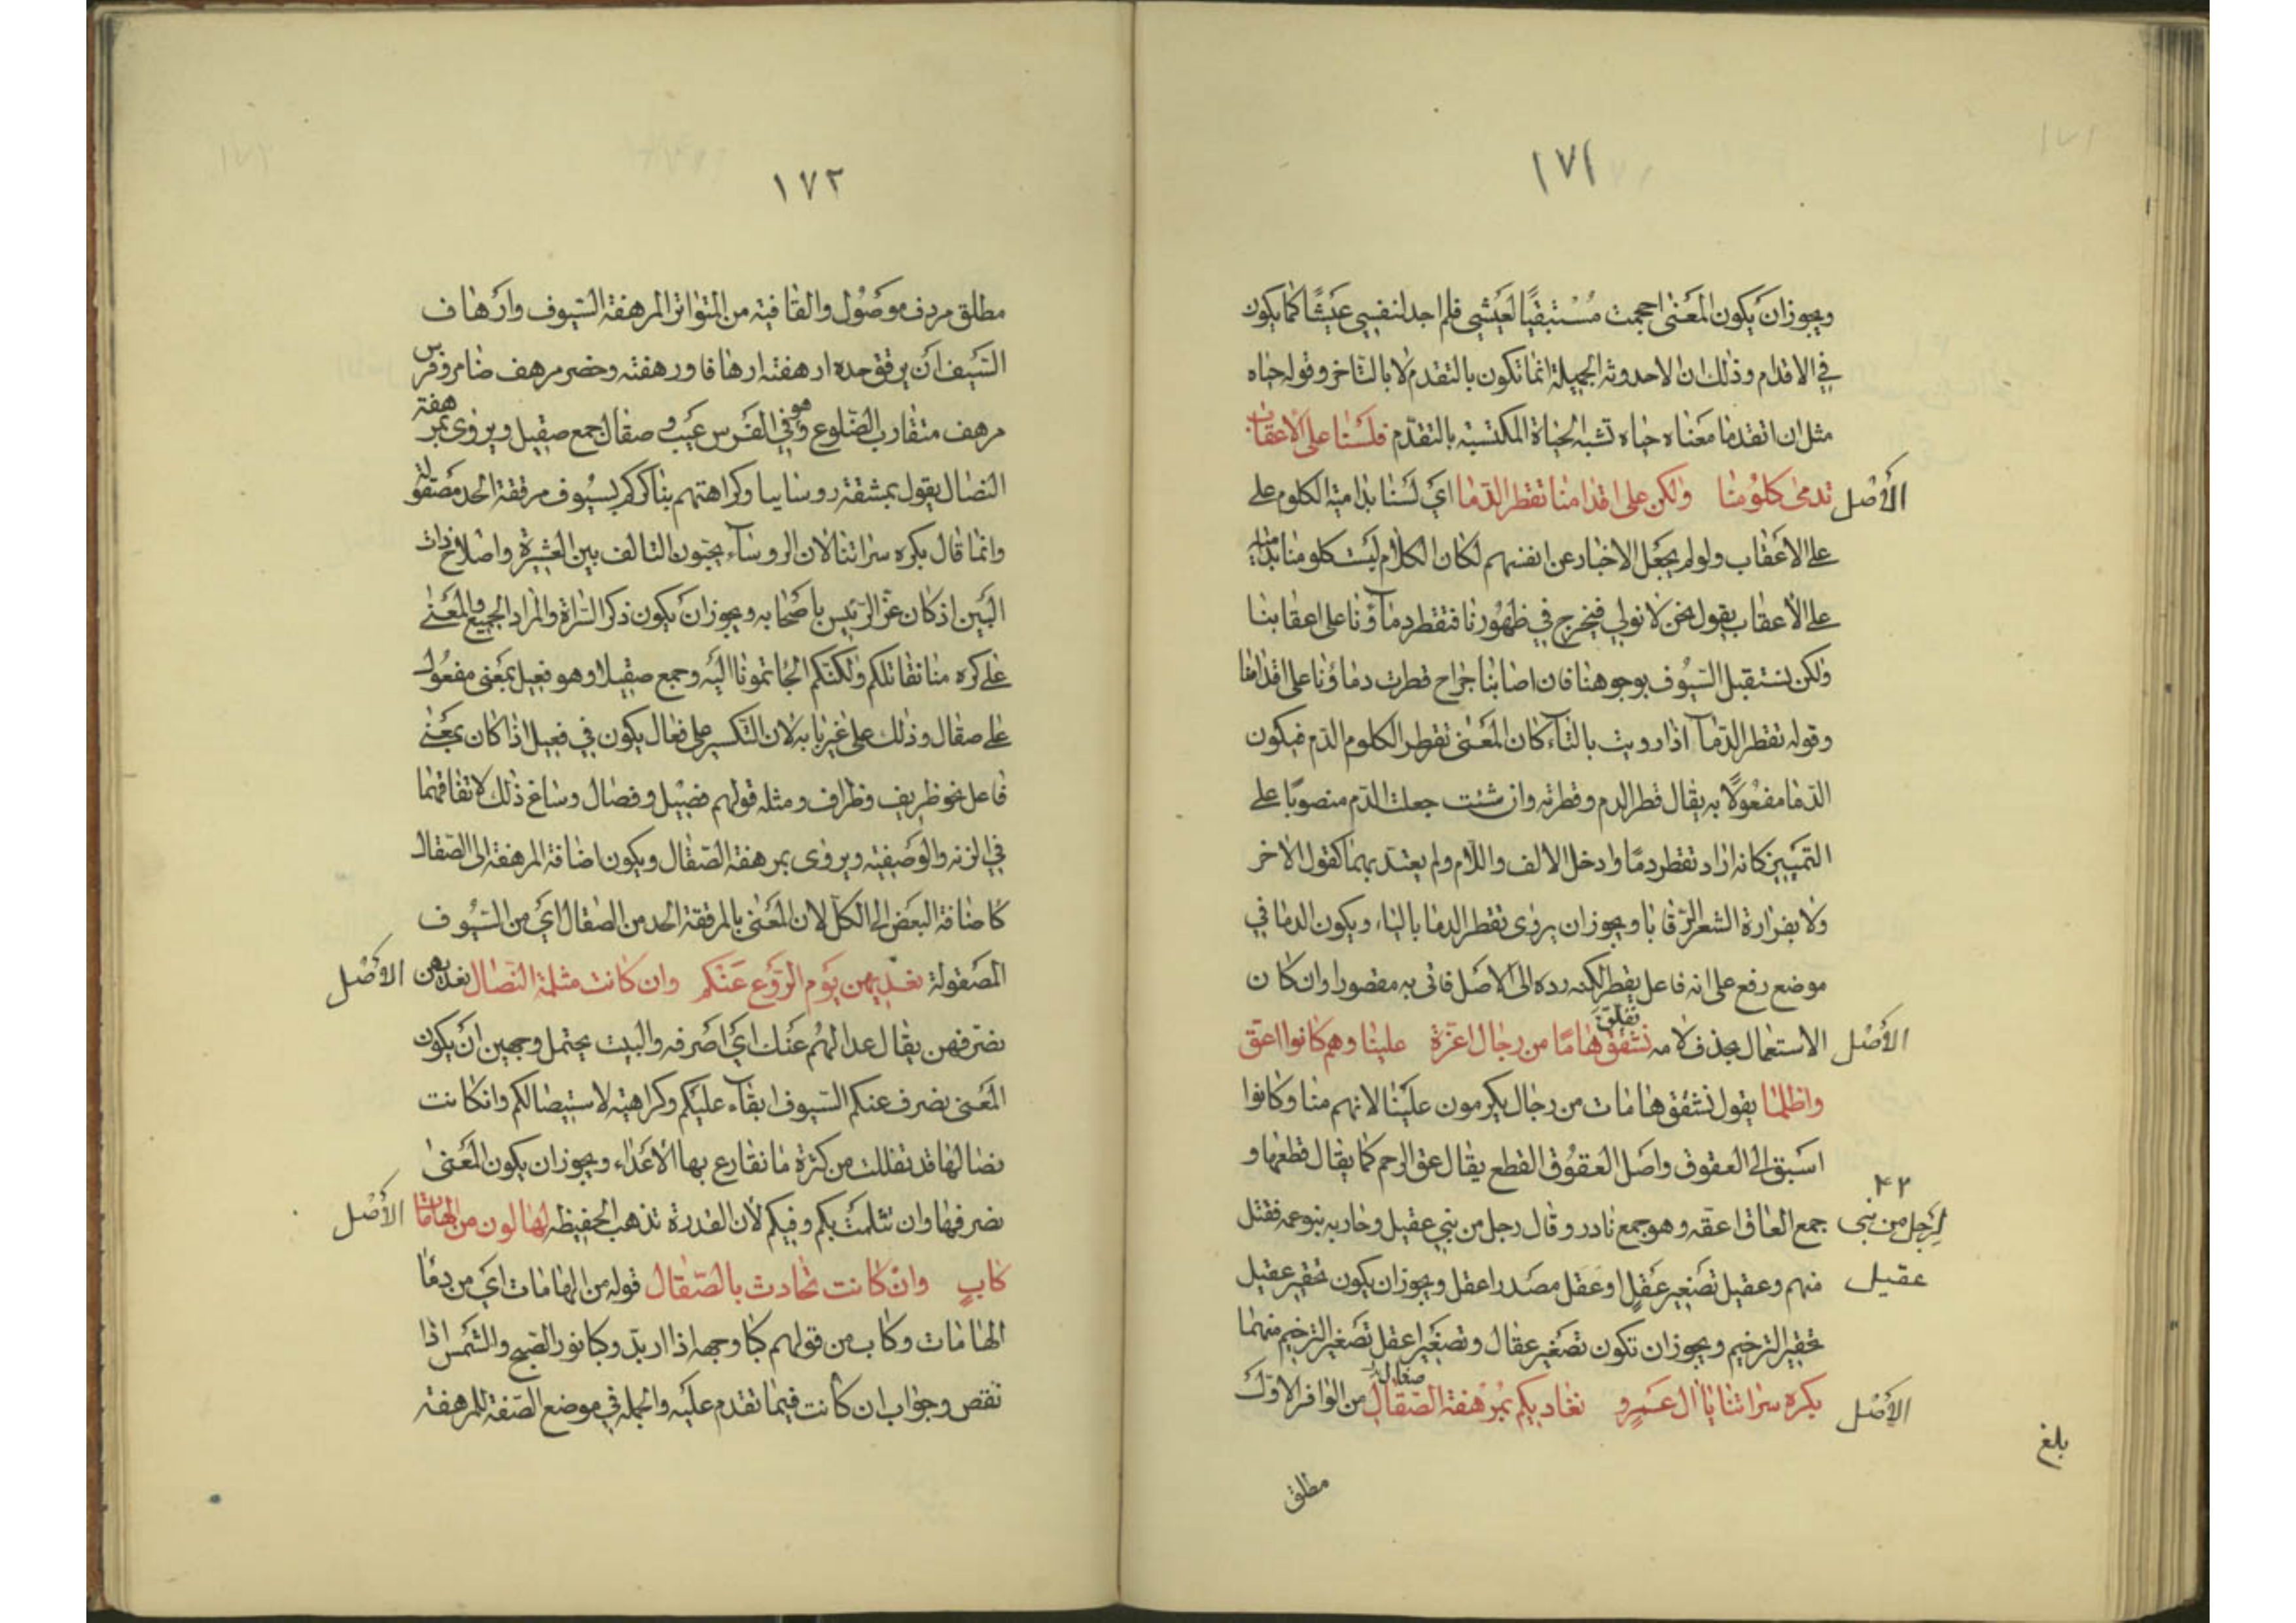 ١٧١
ويجوز ان يكون المعنى احجمت مُسْتبقيًا لعَيشي فلم اجد لنفسي عَيشًا كما يكون
في الاقدام وذلك ان الاحدوثه الجميلة انما تكون بالتقدم لا بالتاخر وقوله حياه
مثل ان اتقدما معناه حياه تشبه الحياة المكتسبة بالتقدّم فلسنا على الاعقاب
الأصل تدمى كلومنا ولكن على اقدامنا تقطر الدّما اي لسنا بدامية الكلوم على
على الاعقاب ولو لم يجعل الاخبار عن انفسهم لكان الكلام ليست كلومنا بدامية
على الاعقاب يقول نحن لا نولي فنخرج في ظهورنا فتقطر دماؤنا على اعقابنا
ولكن نستقبل السيوف بوجوهنا فان اصابنا جراح قطرت دماؤنا على اقدامنا
وقوله تقطر الدّمآ اذا رويت بالتآء كان المعنى تقطر الكلوم الدّم فيكون
الدّما مفعولًا به يقال قطر الدم وقطرته وان شئت جعلت الدّم منصوبًا على
التمييز كانه اراد تقطر دمًا وادخل الالف واللّام ولم يعتد بهما كقول الاخر
ولا بفزارة الشعر الرّقابا ويجوز ان يروى يقطر الدما بالياء ويكون الدما في
موضع رفع على انه فاعل يقطر لكنه رده الى الاصل فاتى به مقصورا وان كان
الأصل الاستعمال بحذف لامه نشقق نفلّق هامًا من رجال اعزّة علينا وهم كانوا اعقّ
واظلما يقول نشقق هامات من رجال يكرمون علينا لانهم منا وكانوا
اسبق الى العقوق واصل العقوق القطع يقال عق الرحم كما يقال قطعها و
٤٢
لرجل من بنى جمع العاق اعقه وهو جمع نادر وقال رجل من بني عقيل وحاربه بنو عمه فقتل
عقيل منهم وعقيل تصغير عَقلٍ او عَقَل مصدر اعقل ويجوز ان يكون تحقير عقيل
تحقير الترخيم ويجوز ان تكون تصغير عقال وتصغير اعقل تصغير الترخيم منهما
الأصل بكره سراتنا يا آل عَمرٍو نغاديكم بمُرْهفة الصّقالِ صقال من الوافر الاوّل
بلغ
مطلق
١٧٢
مطلق مردف موصول والقافية من المتواتر المرهفة السّيوف وارهاف
السّيف ان يرقق حده ارهفته ارهافا ورهفته وخصر مرهف ضامر وفرس
مرهف متقارب الضّلوع وهو في الفرس عيب وصقال جمع صقيل ويروى بمرهفة
النصال يقول بمشقة روسايا وكراهتهم بناكركم بسيوف مرققة الحد مصقولة
وانما قال بكره سراتنا لان الروسآء يحبّون التالف بين العشيرة واصلاح ذات
البين اذ كان عزّ الرّئيس باصحابه ويجوز ان يكون ذكر السّراة والمراد الجميع والمعنى
على كره منا نقاتلكم ولكنكم الجاتمونا اليه وجمع صقيلا وهو فعيل بمعنى مفعول
على صقال وذلك على غير بابه لان التّكسير على فعال يكون في فعيل اذا كان بمعنى
فاعل نحو ظريف وظراف ومثله قولهم فصيل وفصال وساغ ذلك لاتفاقهما
في الزنه والوصفيّه ويروى بمرهفة الصّقال ويكون اضافة المرهفة الى الصّقال
كاضافة البعض الى الكلّ لان المعنى بالمرققة الحد من الصقال اي من السّيوف
المصقولة نعدّيهن يَوم الرّوع عَنكم وان كانت مثلمة النّصال نعديهن الأصل
نصرفهن يقال عد الهمّ عنك اي اصرفه والبيت يحتمل وجهين ان يكون
المعنى نصرف عنكم السّيوف ابقآء عليكم وكراهية لاستيصالكم وان كانت
نصالها قد تفللت من كثرة ما نقارع بها الاعداء ويجوز ان يكون المعنى
نصرفها وان تثلمت بكم وفيكم لأن القدرة تذهب الحفيظه لها لون من الهامات الأصل
كابٍ وان كانت تحادث بالصّقال قوله من الهامات اي من دماء
الهامات وكاب من قولهم كبا وجهه اذا اربدّ وكبا نور الصّبح والشّمس اذا
نقص وجواب ان كانت فيما تقدم عليه والجملة في موضع الصّفة للمرهفة